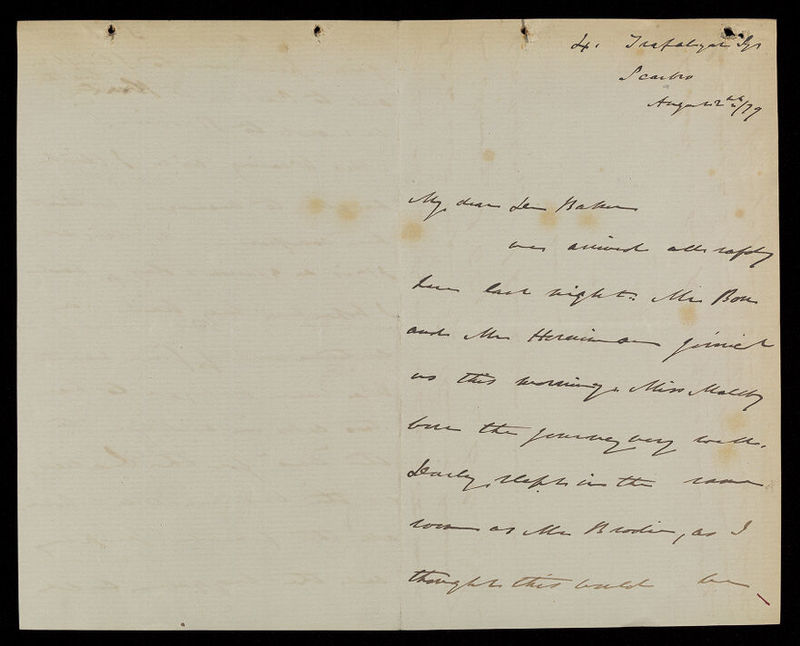 4. Trafalgar Sqr
Scarbro
August 2nd/79
My dear Dr Baker
we arrived all safely
here last night. Mr Bow
and Mr Herniman joined
us this morning. Miss Maltby
bore the journey very well.
Darby slept in the same
room as Mr Brodie, as I
thought this would be